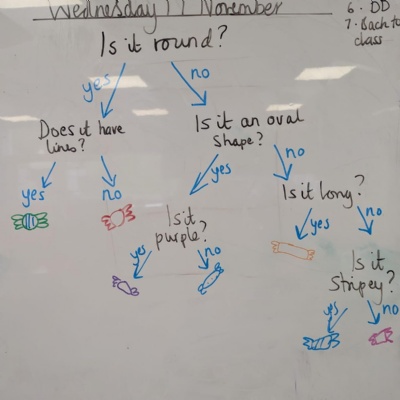 Wednesday 11 November
6. DD
7. Back to
class
Is it round?
yes
no
Does it have
lines?
Is it an oval
shape?
yes
no
yes
no
Is it long?
Is it
purple?
yes
no
yes
no
Is it
stripey?
yes
no